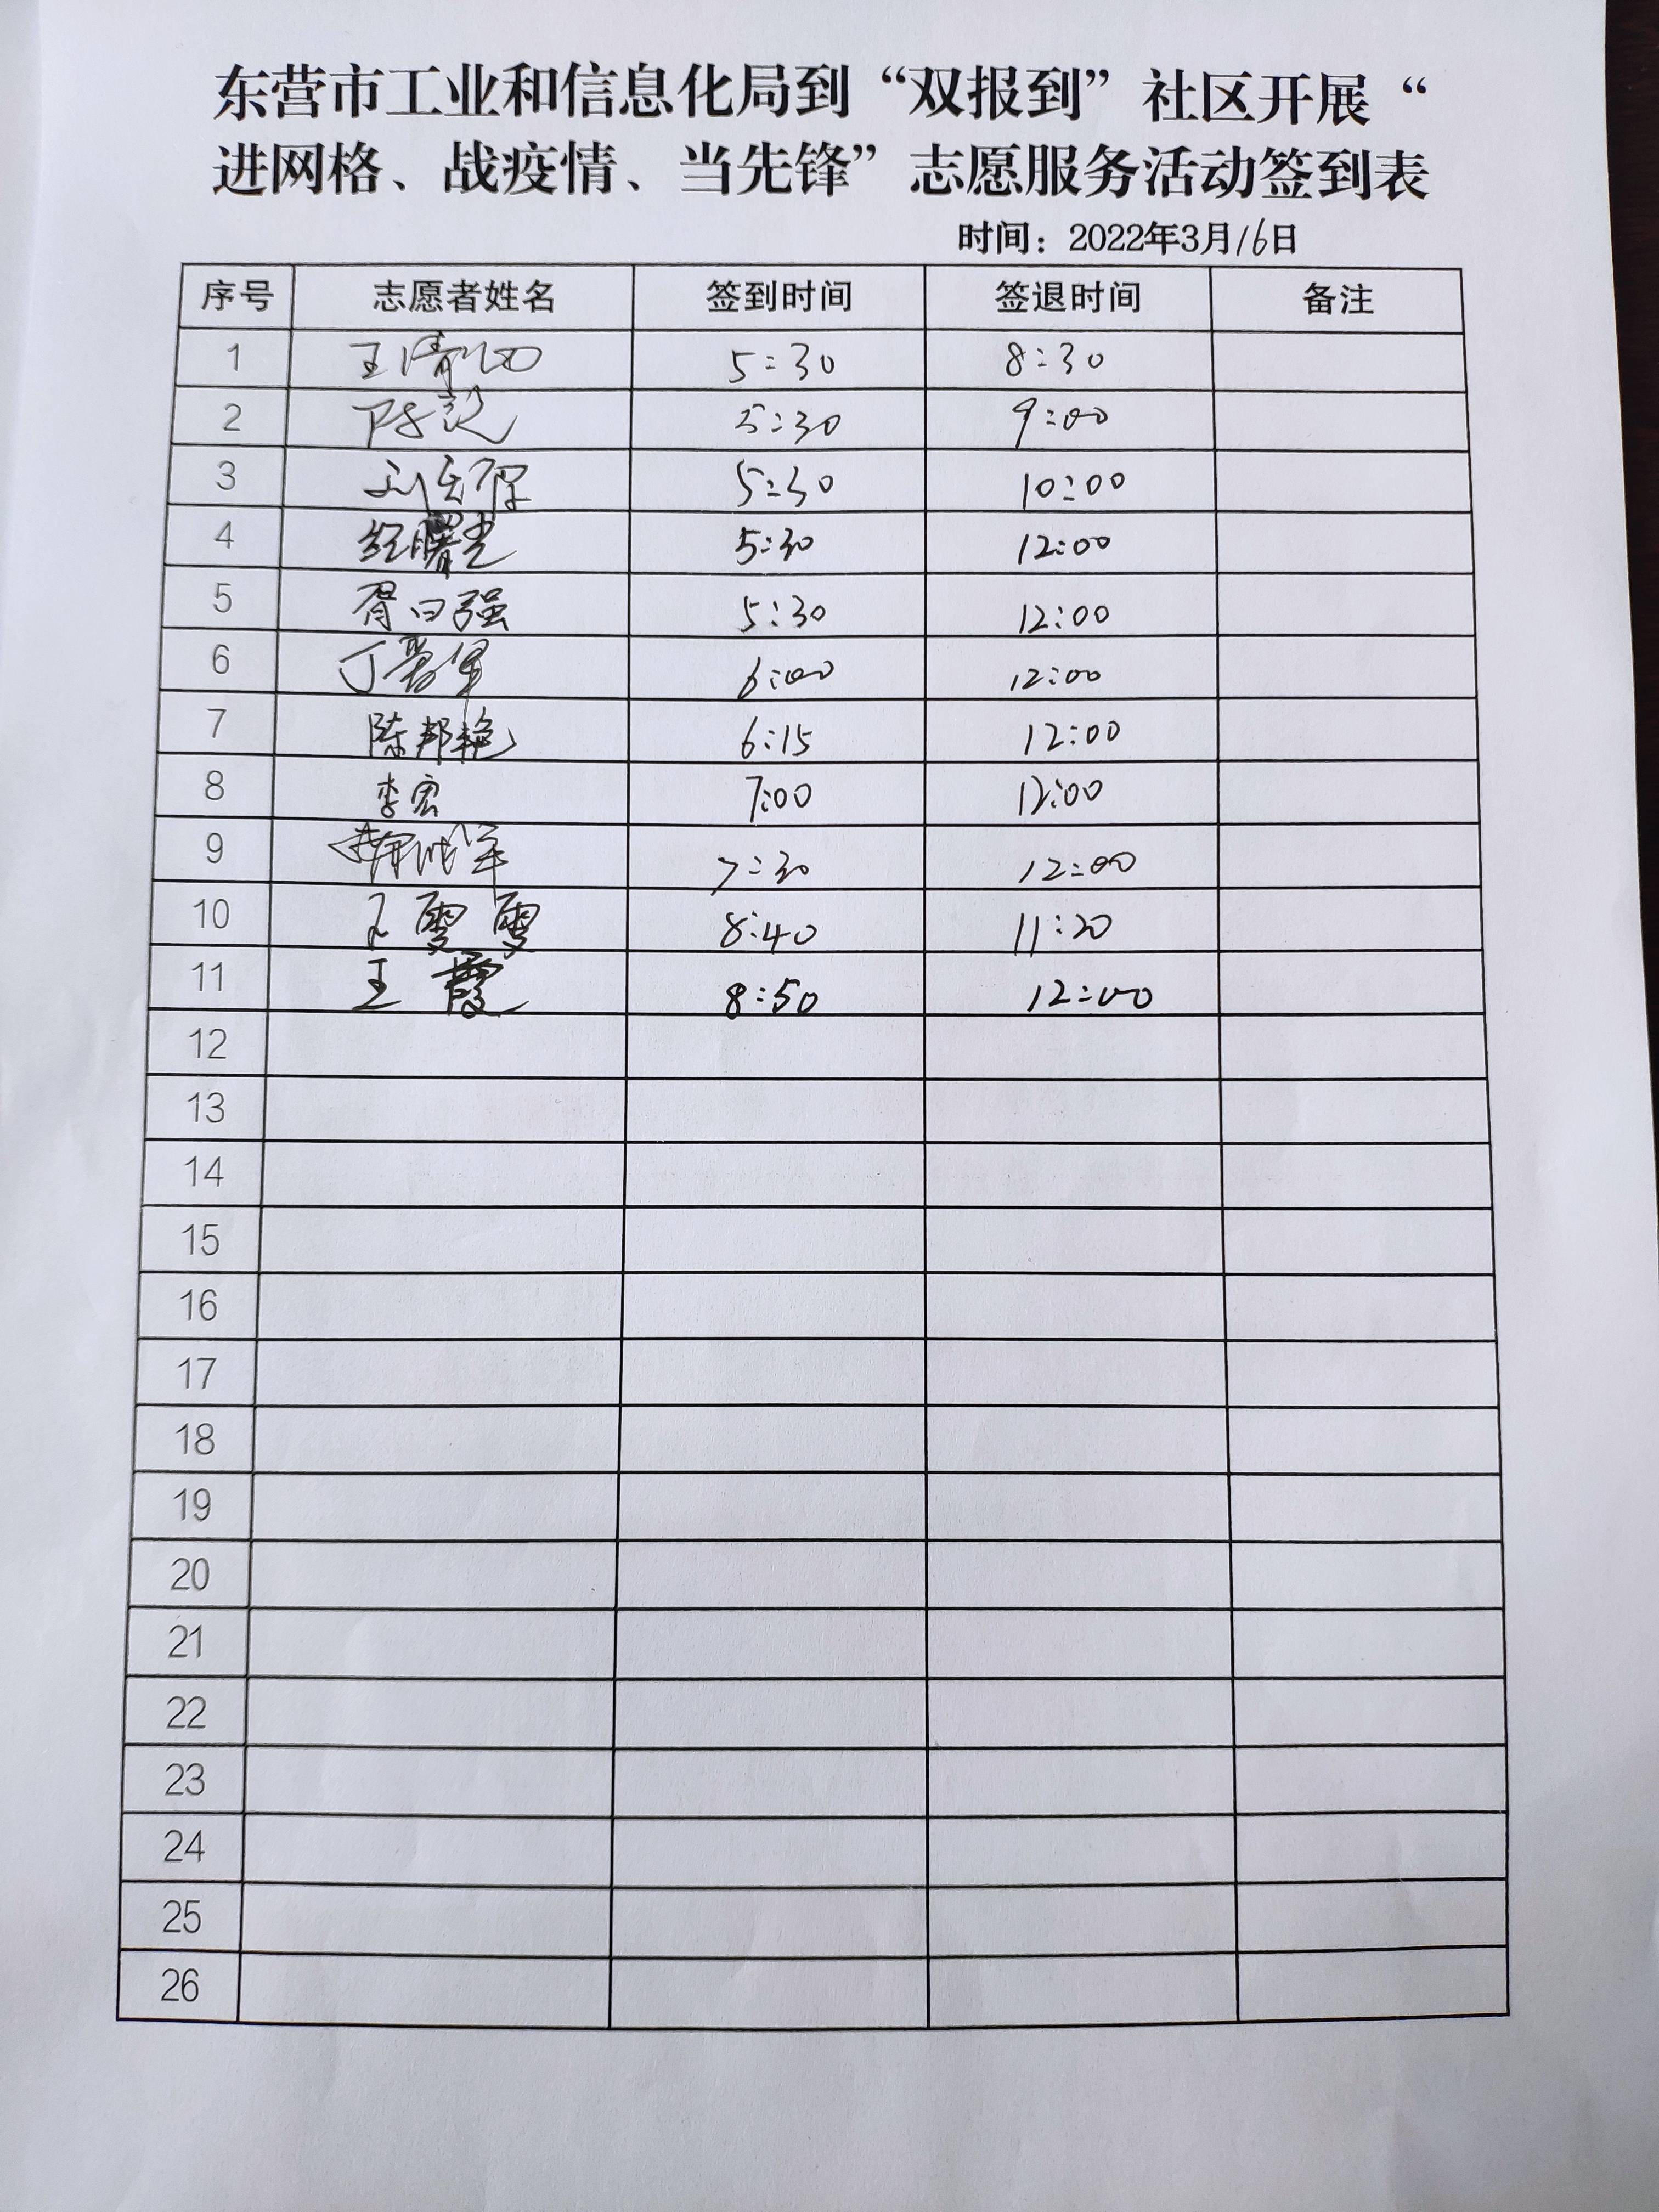 东营市工业和信息化局到“双报到”社区开展“
进网格、战疫情、当先锋”志愿服务活动签到表
时间：2022年3月16日
序号 志愿者姓名 签到时间 签退时间 备注
1 5:30 8:30
2 5:30 9:00
3 5:30 10:00
4 5:30 12:00
5 胥曰强 5:30 12:00
6 丁 6:00 12:00
7 陈邦艳 6:15 12:00
8 李宏 7:00 12:00
9 7:30 12:00
10 王雯雯 8:40 11:20
11 王霞 8:50 12:00
12
13
14
15
16
17
18
19
20
21
22
23
24
25
26